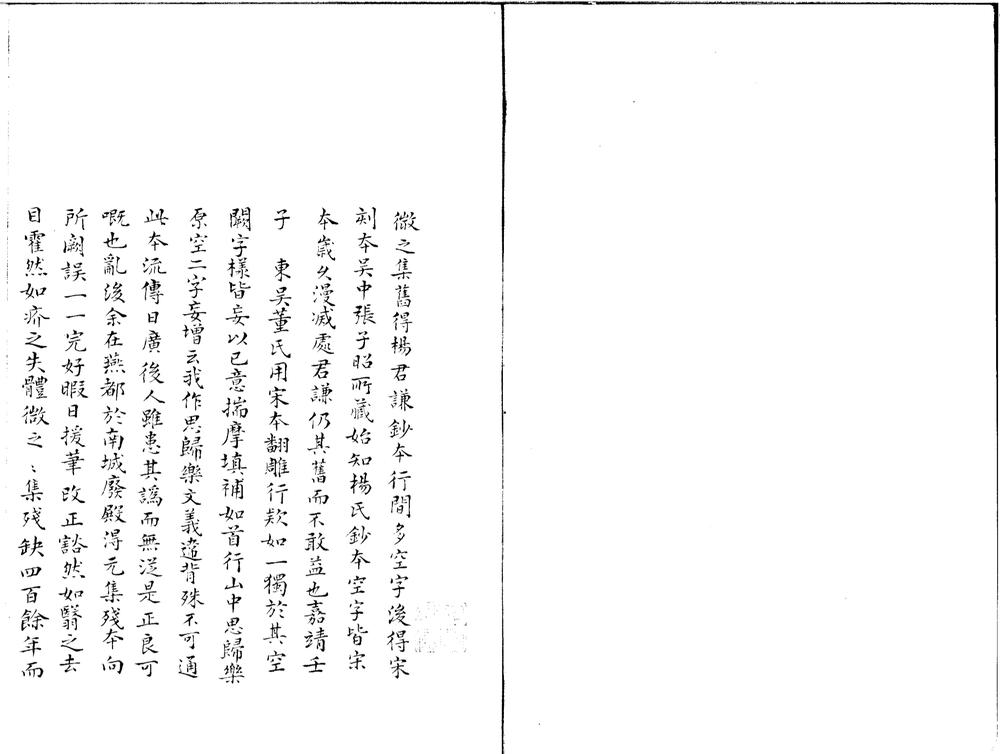 微之集舊得楊君謙鈔本行間多空字後得宋
刻本吳中張子昭所藏始知楊氏鈔本空字皆宋
本歲久漫滅處君謙仍其舊而不敢益也嘉靖壬
子　東吳董氏用宋本翻雕行款如一獨於其空
闕字樣皆妄以己意揣摩填補如首行山中思歸樂
原空二字妄增云我作思歸樂文義違背殊不可通
此本流傳日廣後人雖患其譌而無從是正良可
嘅也亂後余在燕都於南城廢殿得元集殘本向
所闕誤一一完好暇日援筆改正豁然如翳之去
目霍然如疥之失體微之〻集殘缺四百餘年而